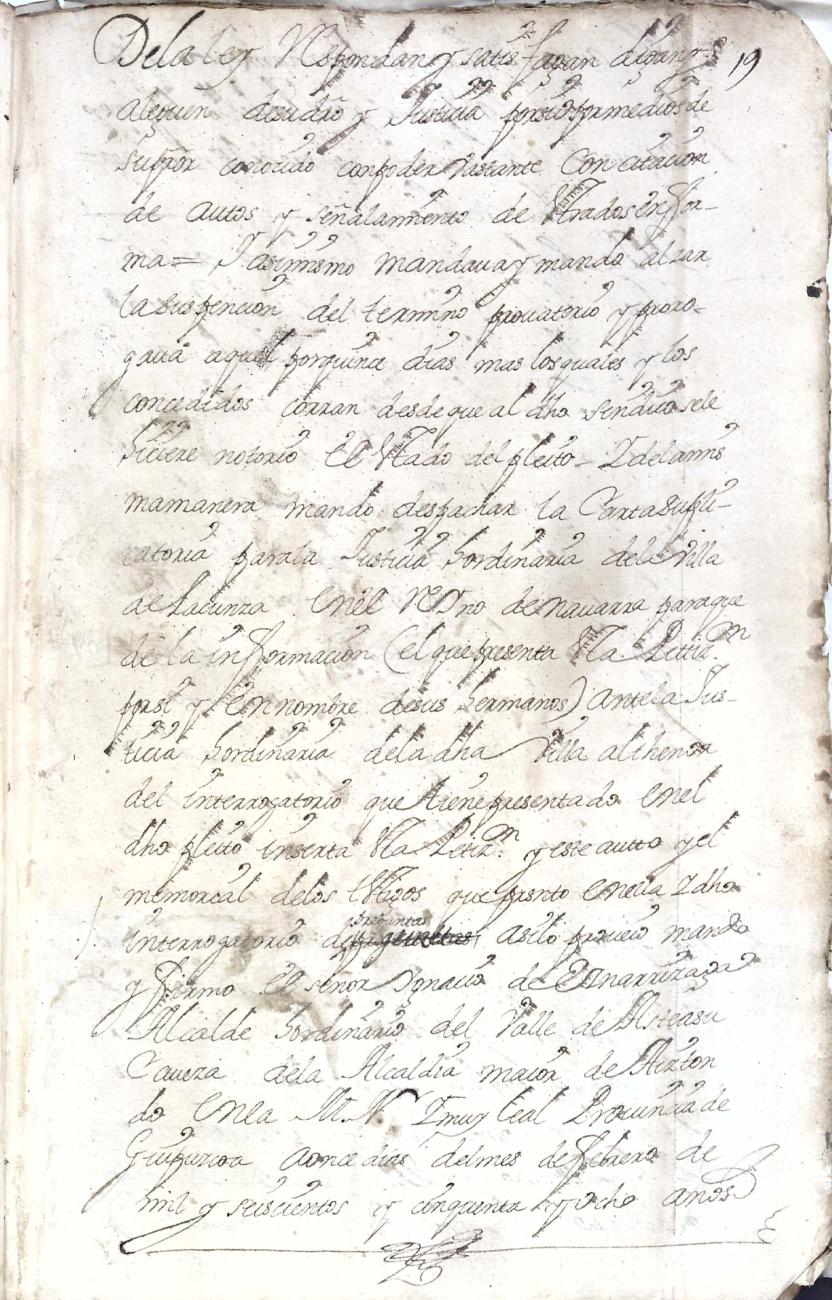 Dela ley Respondan y satisfagan digan y 19
aleguen desudro y Justicia porsi o por medios de
suprror conocido conpoder vastante Con citacion
de autos y señalamiento de estrados en for-
ma = Y asimismo mandava y mando alzar
la suspencion del termino provatorio y proro-
gava aquel por quince dias mas los quales y los
concedidos corran desde que al dho sendico sele
hiciere notorio el estado del pleito = Y dela mis
mamanera mando despachar la Carta supli-
catoria parala Justicia hordinaria dela villa
de Lacunza enel Reyno de navarra paraque
de la informacion (el que presenta esta Petizn
porsi y en nombre desus hermanos) antela Jus-
ticia hordinaria dela dha Villa althenor
del interrogatorio que tiene presentado enel
dho pleito inserta esta Petizn y este autto y el
memorial delos testigos que presnto enella Y dho
interrogatorio de preguntas asilo proveio mando
y firmo el señor Ygnacio de
Alcalde hordinario del Valle de Asteasu
Caveza dela Alcaldia maior de Aizton
do enla M. N. Y muy leal Provincia de
Guipuzcoa aonce dias delmes de febrero de
mil y seiscientos y cinquenta y ocho anos